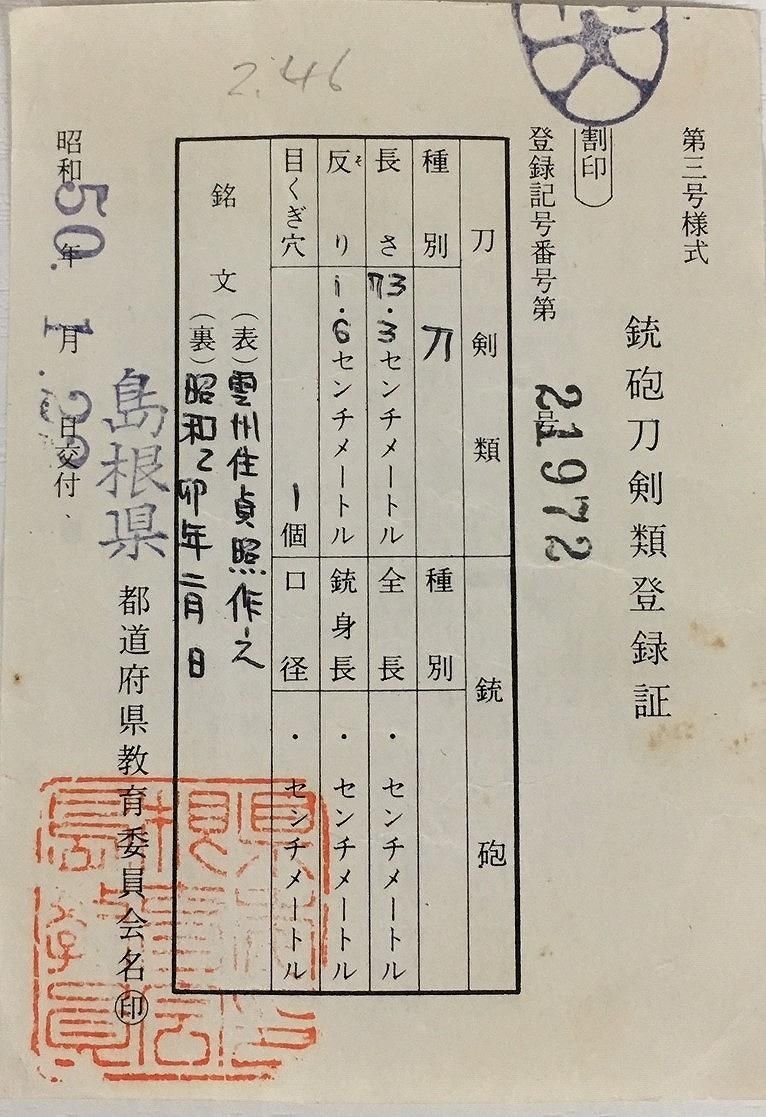 2.46
第三号様式
銃砲刀剣類登録証
割印
登録記号番号第 21972 号
刀剣類
種別 刀
長さ 73.3センチメートル
反り 1.6センチメートル
そ
目くぎ穴 1個
銃砲
種別
全長 ・ センチメートル
銃身長 ・ センチメートル
口径 ・ センチメートル
銘文
(表)雲州住貞照作之
(裏)昭和乙卯年二月日
島根県 都道府県教育委員会名 印
昭和 50年 1月 日交付